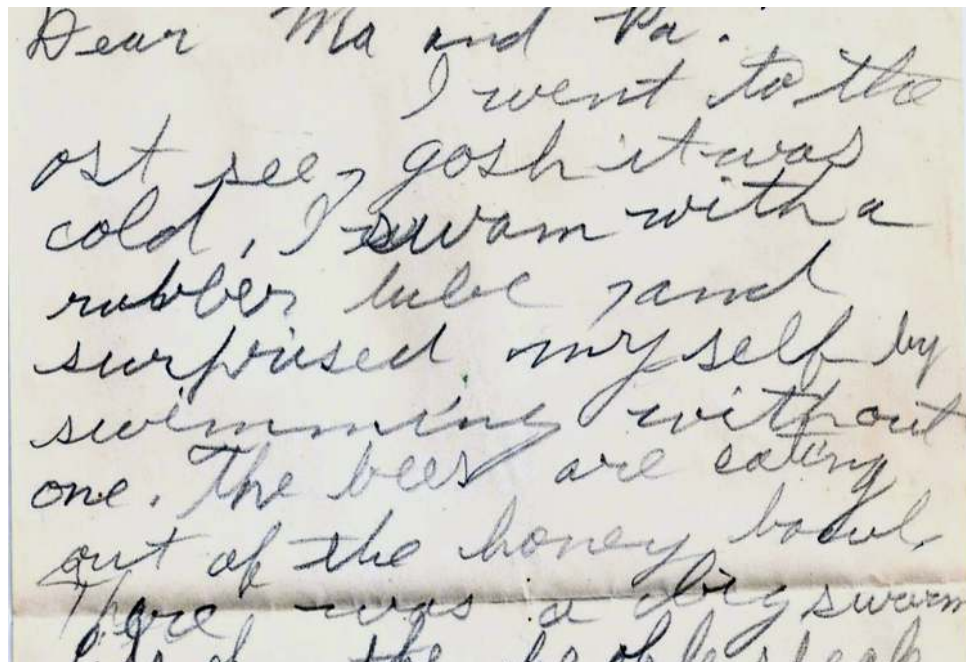 Dear Ma and Pa.
I went to the
ost see, gosh it was
cold, I swam with a
rubber tube, and
surprised myself by
swimming without
one. The bees are eating
out of the honey bowl,
There was a big swarm
the